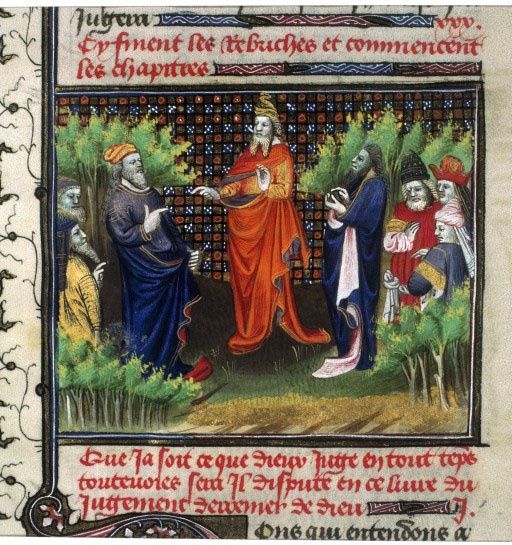 Jugera xxx.
Cy finent les Rebriches et commencent
les chapittres
Que Ja soit ce que dieux Juge en tout teps
toutevoies sera Il dispute en ce liure du
Jugement derrenier de dieu J.
Ons qui entendons a